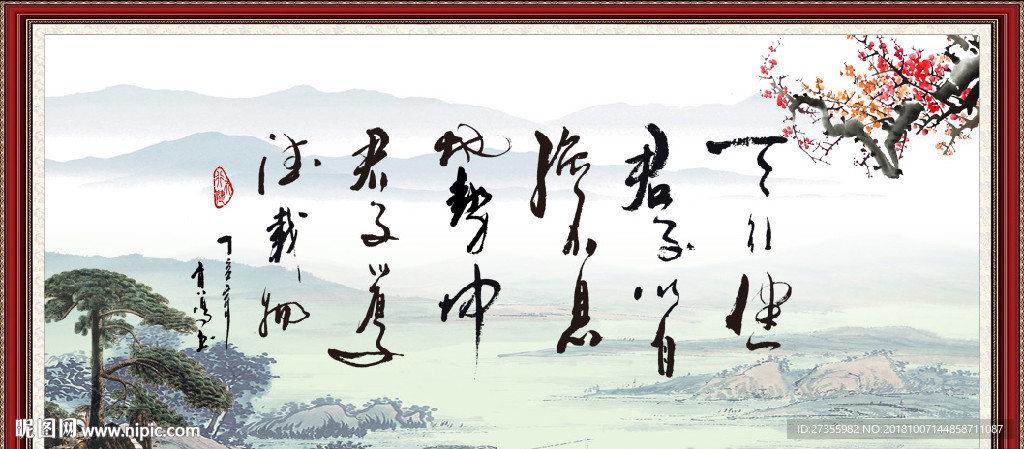 天行健
君子以自
强不息
地勢坤
君子以厚
德載物
丁亥年
昵图网 www.nipic.com
ID:27355982 NO:20181007144858711087